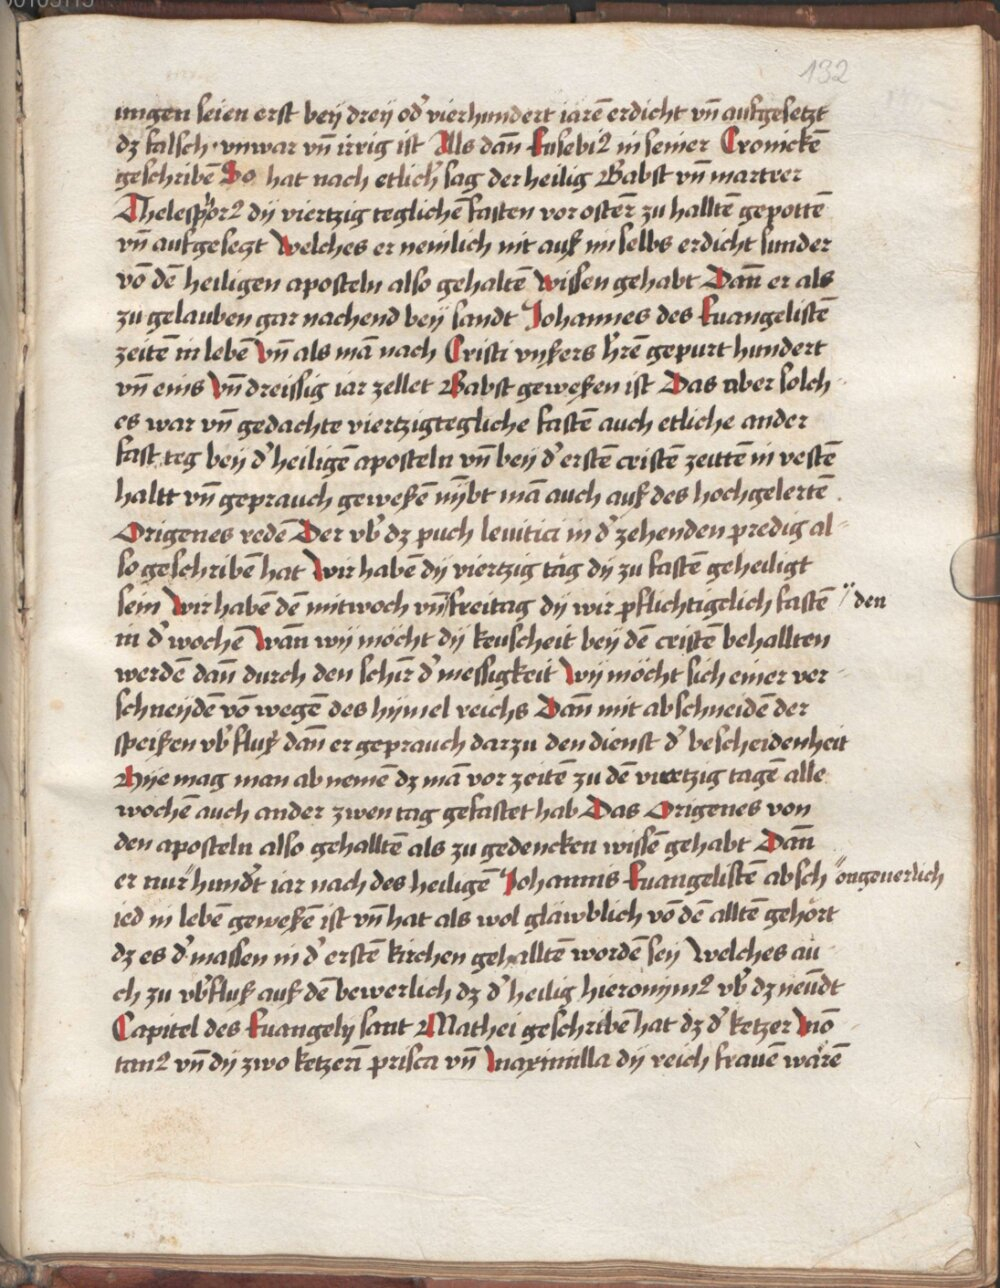 132
ungen seien erst beÿ dreÿ od̕ vierhundert iarē erdicht vn̄ aufgesetzt
dz falsch · vnwar vn̄ irrig ist Als dan̄ Eusebi9 in seiner Cronickē
geschribē So hat nach etlich̕ sag der heilig Babst vn̄ martrer
Thelesphor9 dÿ viertzig teglichē fasten vor ostēr zu halltē gepottē
vn̄ aufgesetzt Welches er nemlich nit auß im selbs erdicht sunder
vō dē heiligen aposteln also gehaltē wissen gehabt Dan̄ er als
zu gelauben gar nachend beÿ sandt Johannes des Euangelistē
zeitē in lebē Vn̄ als mā nach Cristi vnßers h̕rē gepurt hundert
vn̄ eins Vn̄ dreissig iar zellet Babst geweßen ist Das aber solch-
es war vn̄ gedachte viertzigtegliche fastē auch etliche ander
fast teg beÿ d̕ heiligē aposteln vn̄ beÿ d̕ erstē cristē zeittē in vestē
haltt vn̄ geprauch geweßē nÿbt mā auch auß des hochgelertē
Origenes redē Der vb̕ dz puch leuitici in d̕ zehenden predig al-
so geschribē hat Wir habē dÿ viertzig tag dÿ zu fastē geheiligt
sein Wir habē dē mitwoch vn̄ freitag dÿ wir pflichtigclich fastē " den
in d̕ wochē Wan̄ wÿ möcht dÿ keuscheit beÿ dē cristē behallten
werdē dan̄ durch den schir̄ d̕ messigkeit Wÿ möcht sich einer ver-
schneÿdē vō wegē des hÿmel reichs Dan̄ mit abschneidē der
speißen vb̕fluß dan̄ er geprauch darzu den dienst d̕ bescheidenheit
Hÿe mag man abnemē dz mā vor zeitē zu dē viertzig tagē alle
wochē auch ander zwen tag gefastet hab Das Origenes von
den aposteln also gehalltē als zu gedencken wissē gehabt Dan̄
er nur " hund̕t iar nach des heiligē Johannis Euangelistē absch " ongeuerlich
ied in lebē geweßē ist vn̄ hat als wol gläwblich vō dē alltē gehört
dz es d̕massen in d̕ erstē kirchen gehalltē wordē seÿ Welches au-
ch zu vb̕fluß auß dē bewerlich dz d̕ heilig hieronÿm9 vb̕ dz neu̇dt
Capitel des Euangelÿ sant Mathei geschribē hat dz d̕ ketzer Mō-
tan9 vn̄ dÿ zwo ketzerī prisca vn̄ Maximilla dÿ reich frauē warē